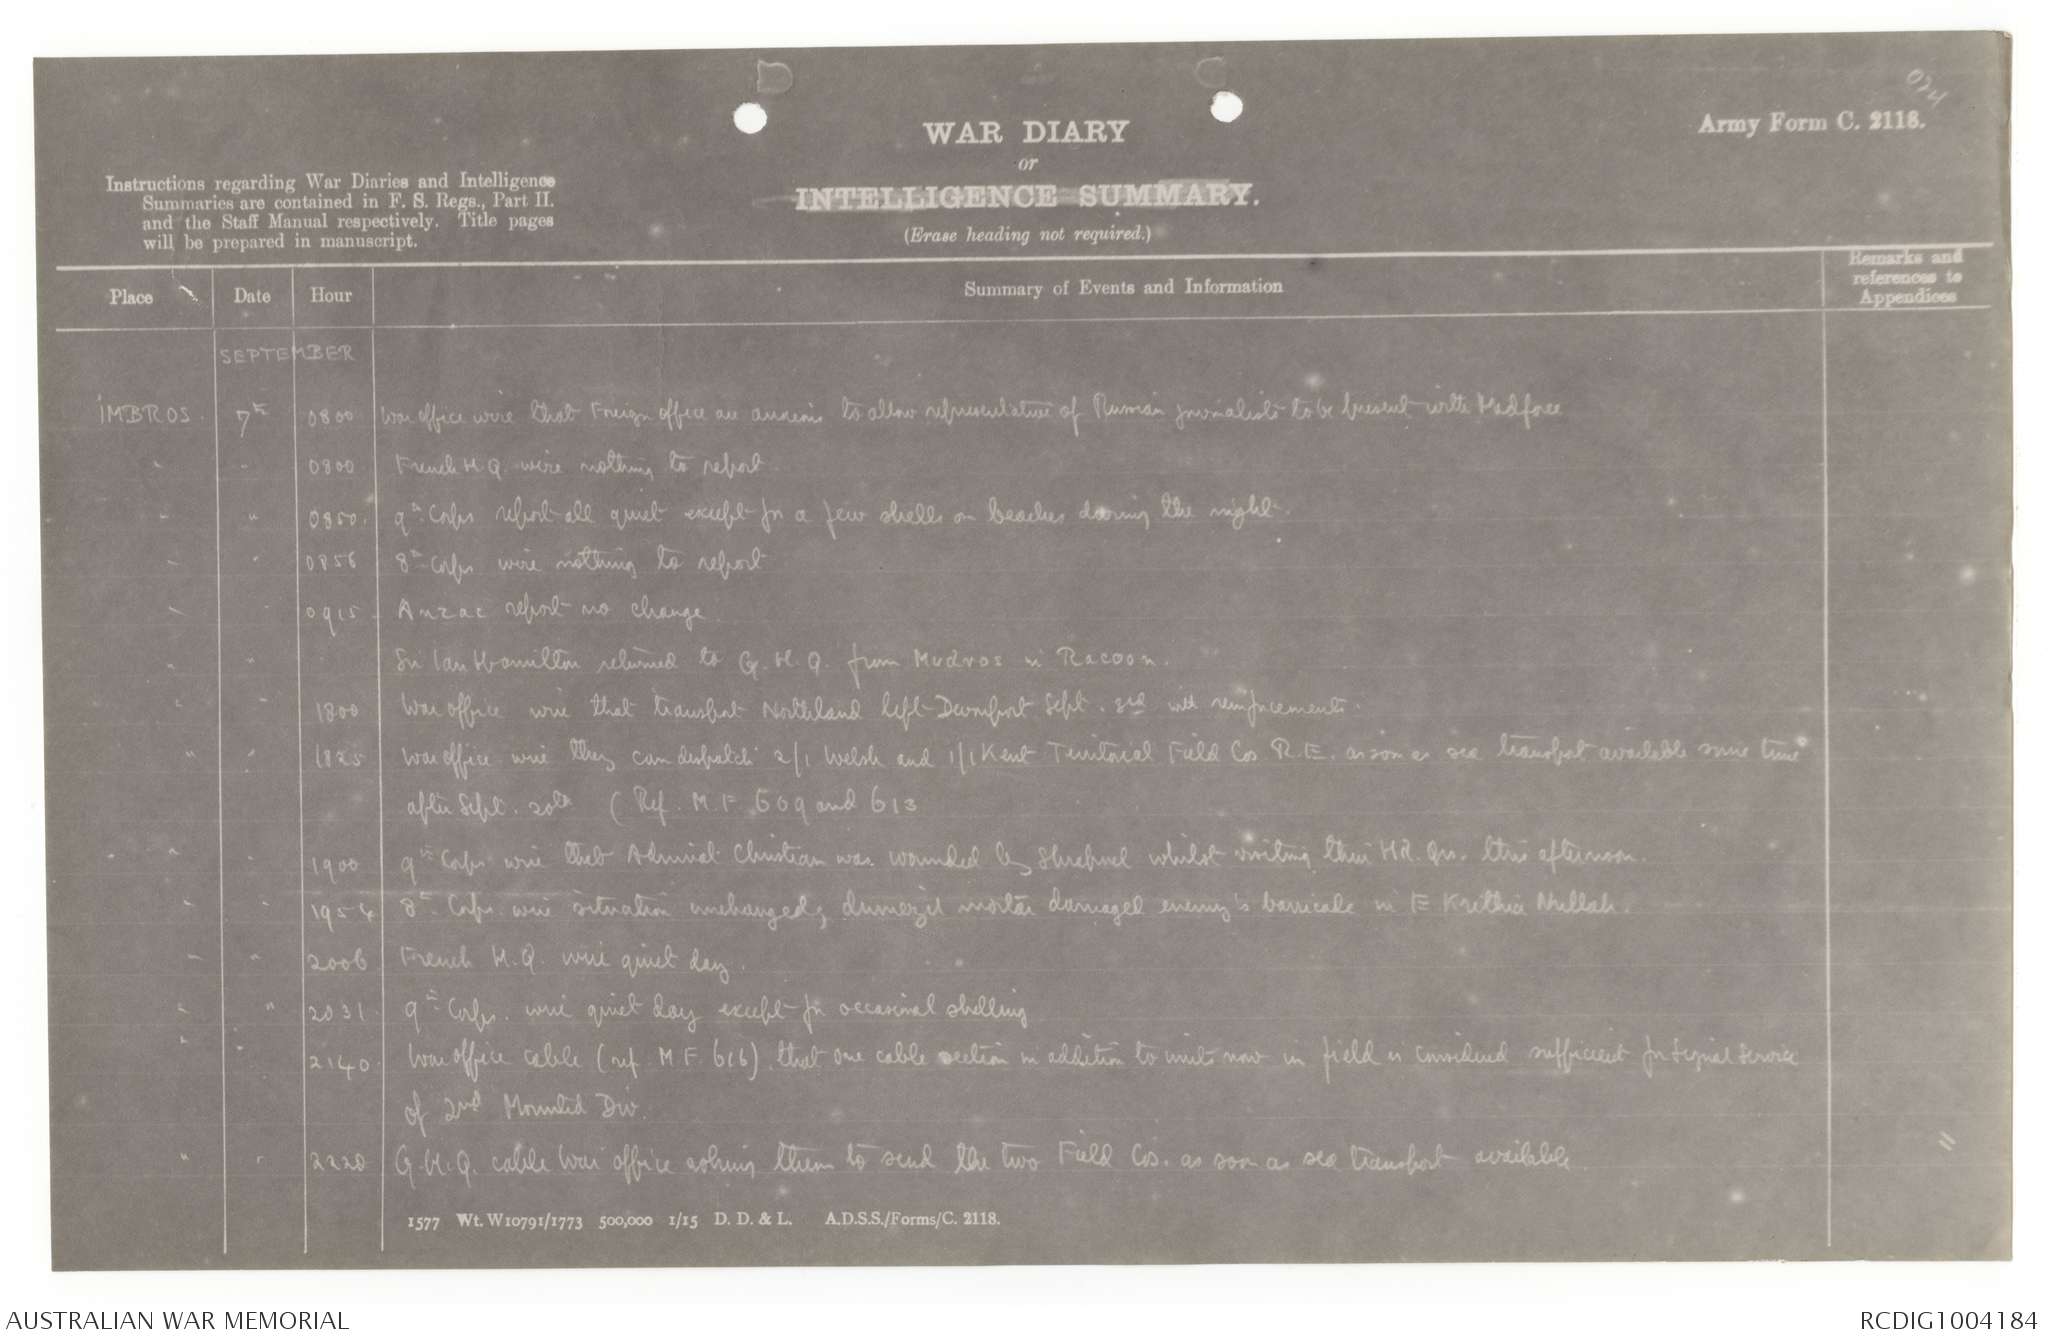 024
Army Form C. 2118.
WAR DIARY
or
INTELLIGENCE SUMMARY.
(Erase heading not required.)
Instructions regarding War Diaries and Intelligence
Summaries are contained in F. S. Regs., Part II.
and the Staff Manual respectively. Title pages
will be prepared in manuscript.
Place Date Hour Summary of Events and Information Remarks and references to Appendices
SEPTEMBER
IMBROS. 7th 0800 War office wire that Foreign office are anxious to allow representative of Russian journalists to be present with Medforce
" " 0800 French H.Q. wire nothing to report
" " 0850. 9th Corps report all quiet except for a few shells on beaches during the night.
" " 0856 8th Corps wire nothing to report
" " 0915 Anzac report no change.
" " Sir Ian Hamilton returned to G.H.Q. from Mudros in Racoon.
" " 1800 War office wire that transport Northland left Devonport Sept. 3rd with reinforcements.
" " 1825 War office wire they can despatch 2/1 Welsh and 1/1 Kent Territorial Field Cos R.E. as soon as sea transport available some time
after Sept. 20th (Ref. M.F. 609 and 613
" " 1900 9th Corps wire that Admiral Christian was wounded by Shrapnel whilst visiting their HR. Qrs. this afternoon.
" " 1954 8th Corps. wire situation unchanged; dumezil mortar damaged enemy's barricade in E Krithia Nullah.
" " 2006 French H.Q. wire quiet day.
" " 2031. 9th Corps. wire quiet day except for occasional shelling
" " 2140. War office cable (ref. M.F. 616) that one cable section in addition to units now in field is considered sufficient for Signal Service
of 2nd Mounted Div.
" " 2220 G.H.Q. cable War office asking them to send the two Field Cos. as soon as sea transport available.
1577 Wt. W10791/1773 500,000 1/15 D. D. & L. A.D.S.S./Forms/C. 2118.
AUSTRALIAN WAR MEMORIAL
RCDIG1004184